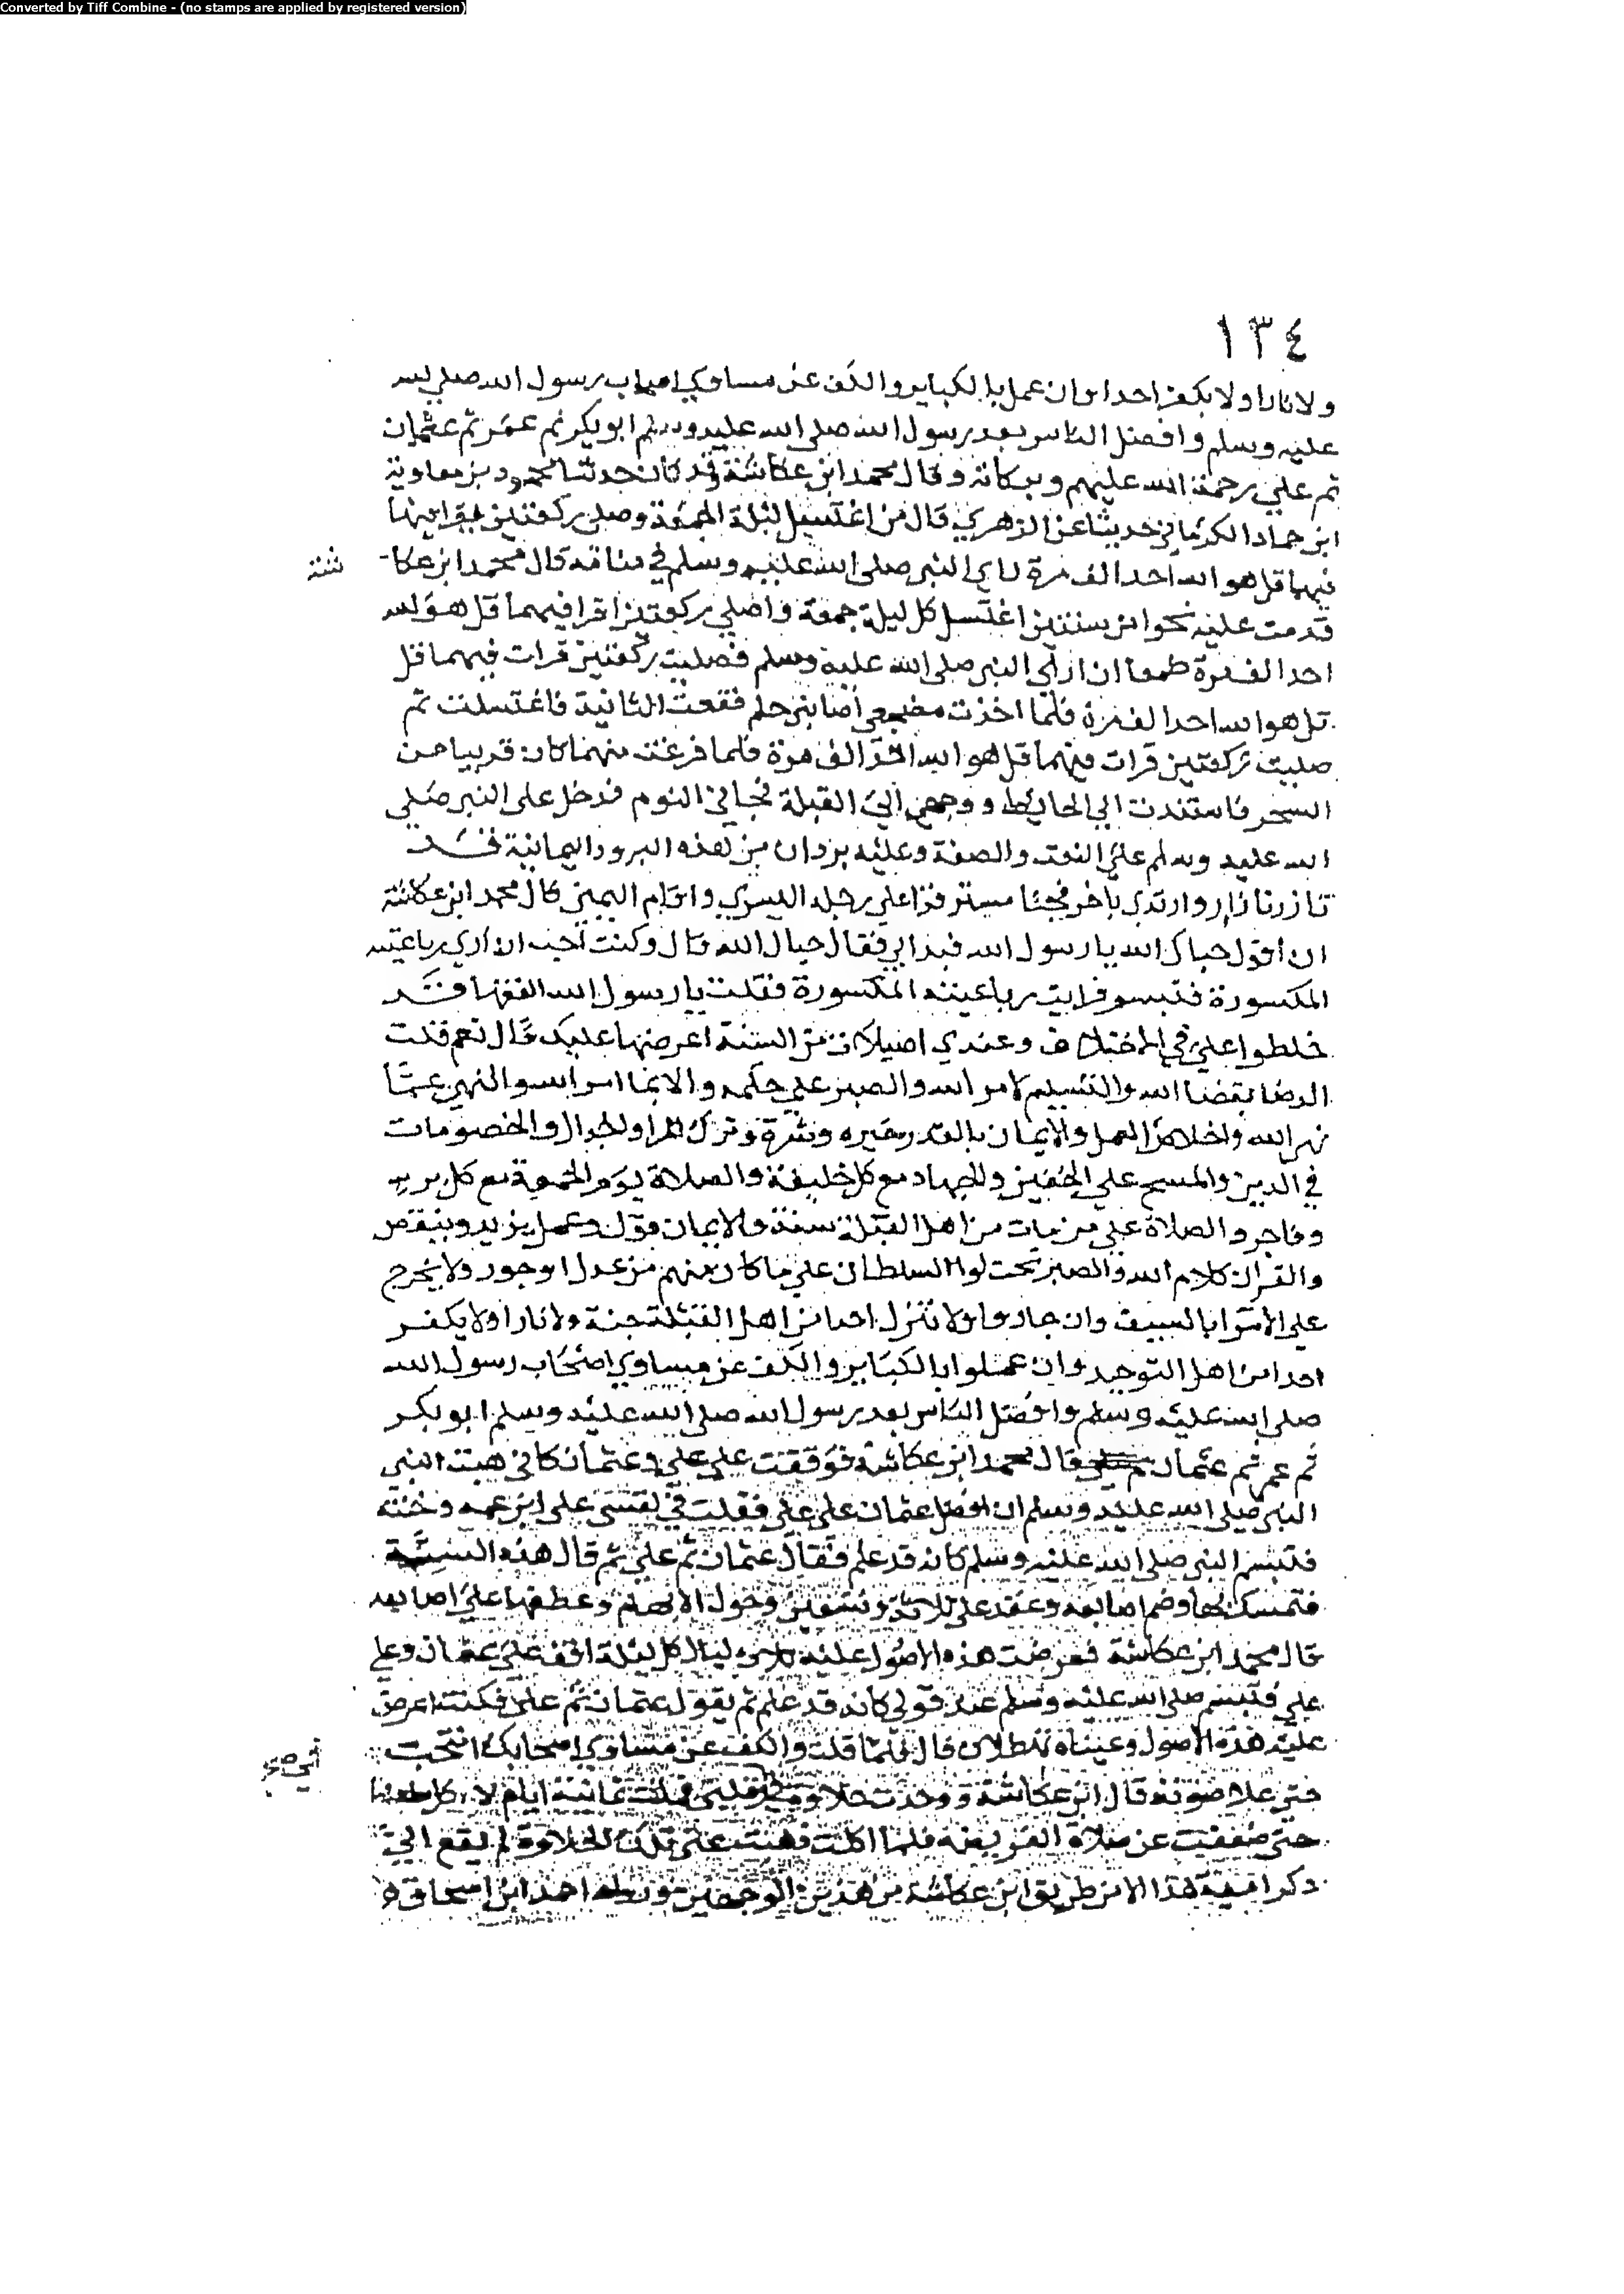 Converted by Tiff Combine - (no stamps are applied by registered version)
١٣٤
ولا نارا ولا يكفر احدا وان عمل بالكباير والكف عن مساوي اصحاب رسول الله صلى الله
عليه وسلم وافضل الناس بعد رسول الله صلى الله عليه وسلم ابو بكر ثم عمر ثم عثمان
ثم علي رحمة الله عليهم وبركاته وقال محمد ابن عكاشة وقد كان حدثنا محمود بن معاوية
ابن حماد الكرماني حديثا عن الزهري قال من اغتسل ليلة الجمعة وصلى ركعتين يقرا
فيهما قل هو الله احد الف مرة راي النبي صلى الله عليه وسلم في منامه قال محمد ابن عكا-
شة
قدمت عليه نحوا من سنتين اغتسل كل ليلة جمعة واصلي ركعتين اقرا فيهما قل هو الله
احد الف مرة طمعا ان اري النبي صلى الله عليه وسلم فصليت ركعتين قرات فيهما قل
قل هو الله احد الف مرة فلما اخذت مضجعي اصابني حلم فقمت الثانية فاغتسلت ثم
صليت ركعتين قرات فيهما قل هو الله احد الف مرة فلما فرغت منهما كان قريبا من
السحر فاستندت الي الحايط ووجهي الي القبلة فجاني النوم فدخل علي النبي صلي
الله عليه وسلم علي النعت والصفة وعليه بردان من هذه البرود اليمانية قد
تازر بازار وارتدي باخر فجثا مستوفزا علي رجله اليسري واقام اليمني قال محمد ابن عكاشة
ان اقول حياك الله يا رسول الله فبداني فقال حياك الله قال وكنت احب ان اري رباعيته
المكسورة فتبسم فرايت رباعيته المكسورة فقلت يا رسول الله الفقها قد
خلطوا علي في الاختلاف وعندي اصيلات من السنة اعرضها عليك قال نعم قلت
الرضا بقضا الله والتسليم لامر الله والصبر علي حكمه والا بما امر الله والنهي عما
نهى الله واخلاص العمل والايمان بالقدر خيره وشره وترك المرا والجدال والخصومات
في الدين والمسح علي الخفين والجهاد مع كل خليفة والصلاة يوم الجمعة مع كل بر
وفاجر والصلاة علي من مات من اهل القبلة سنة والايمان قول وعمل يزيد وينقص
والقران كلام الله والصبر تحت لوا السلطان علي ما كان منهم من عدل او جور ولا يخرج
علي الامرا بالسيف وان جاروا ولا ننزل احدا من اهل القبلة جنة ولا نارا ولا يكفر
احدا من اهل التوحيد وان عملوا بالكباير والكف عن مساوي اصحاب رسول الله
صلى الله عليه وسلم وافضل الناس بعد رسول الله صلى الله عليه وسلم ابو بكر
ثم عمر ثم عثمان قال محمد ابن عكاشة فوقفت علي علي وعثمان كاني هبت النبي
النبي صلى الله عليه وسلم ان افضل عثمان علي علي فقلت في نفسي علي ابن عمه وختنه
فتبسم النبي صلى الله عليه وسلم كانه قد علم فقال عثمان ثم علي ثم قال هذه السنة
فتمسك بها وضم اصابعه وعقد علي ثلاثة وتسعين وحول الابهام وعطفها علي اصابعه
قال محمد ابن عكاشة فعرضت هذه الاصول عليه ثلاث ليال كل ليلة اقف علي عثمان وعلي
علي فتبسم صلى الله عليه وسلم عند قولي كانه قد علم ثم يقول عثمان ثم علي فكنت اعرض
عليه هذه الاصول وعيناه تهطلان قال فلما قلت والكف عن مساوي اصحابك انتحب
حتى علا صوته قال ابن عكاشة ووجدت حلاوة في قلبي فمكثت ثمانية ايام لا اكل
حتى ضعفت عن صلاة الفريضة فلما اكلت ذهبت عني تلك الحلاوة لم يقع الي
ذكر امية هذا الا من طريق ابن عكاشة من هذين الوجهين احمد ابن اسحاق